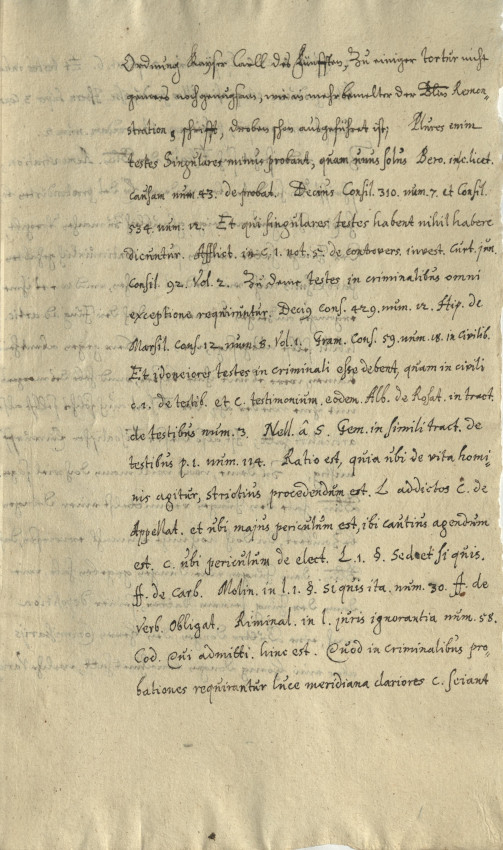 Ordnung Kayser Caroll des Fünfften, Zu einiger tortur nicht
genug noch genugsam, wie in mehrbemelter der Remon-
stration schrifft, droben schon ausgeführet ist, Plures enim
testes Singulares minus probant, quam unus solus Bero. in c. licet.
causam num. 43. de probat. Decius Consil. 310. num. 7. et Consil.
534. num. 12. Et qui singulares testes habent nihil habere
dicuntur. Afflict. in C. 1. not. 5. de controvers. invest. Curt. jun.
Consil. 92. Vol. 2. Zu deme, testes in criminalibus omni
exceptione requiruntur. Decig Cons. 429. num. 12. Hip. de
Marsil. Cons. 12. num. 8. Vol. 1. Gram. Cons. 59. num. 18. in Civilib.
Et idoneiores testes in criminali esse debent, quam in civili
c. 1. de testib. et C. testimonium, eodem. Alb. de Rosat. in tract.
de testibus num. 3. Nell. â S. Gem. in simili tract. de
testibus p. 1. num. 114. Ratio est, quia ubi de vita homi
nis agitur, strictius procedendum est. L addictos C. de
Appellat. et ubi majus periculum est, ibi cautius agendum
est. C. ubi periculum de elect. L. 1. §. Sed et si quis.
ff. de Carb. Molin. in l. 1. §. si quis ita. num. 30. ff. de
verb. Obligat. Riminal. in l. juris ignorantia num. 58.
Cod. Qui admitti. hinc est. Quod in criminalibus pro-
bationes requirantur luce meridiana clariores C. sciant